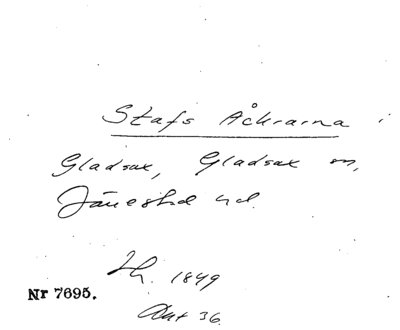 Stafs Åkrarna i
Gladsax, Gladsax sn,
Järrestad hd.
Sk. 1849
Nr 7695.
Akt 36